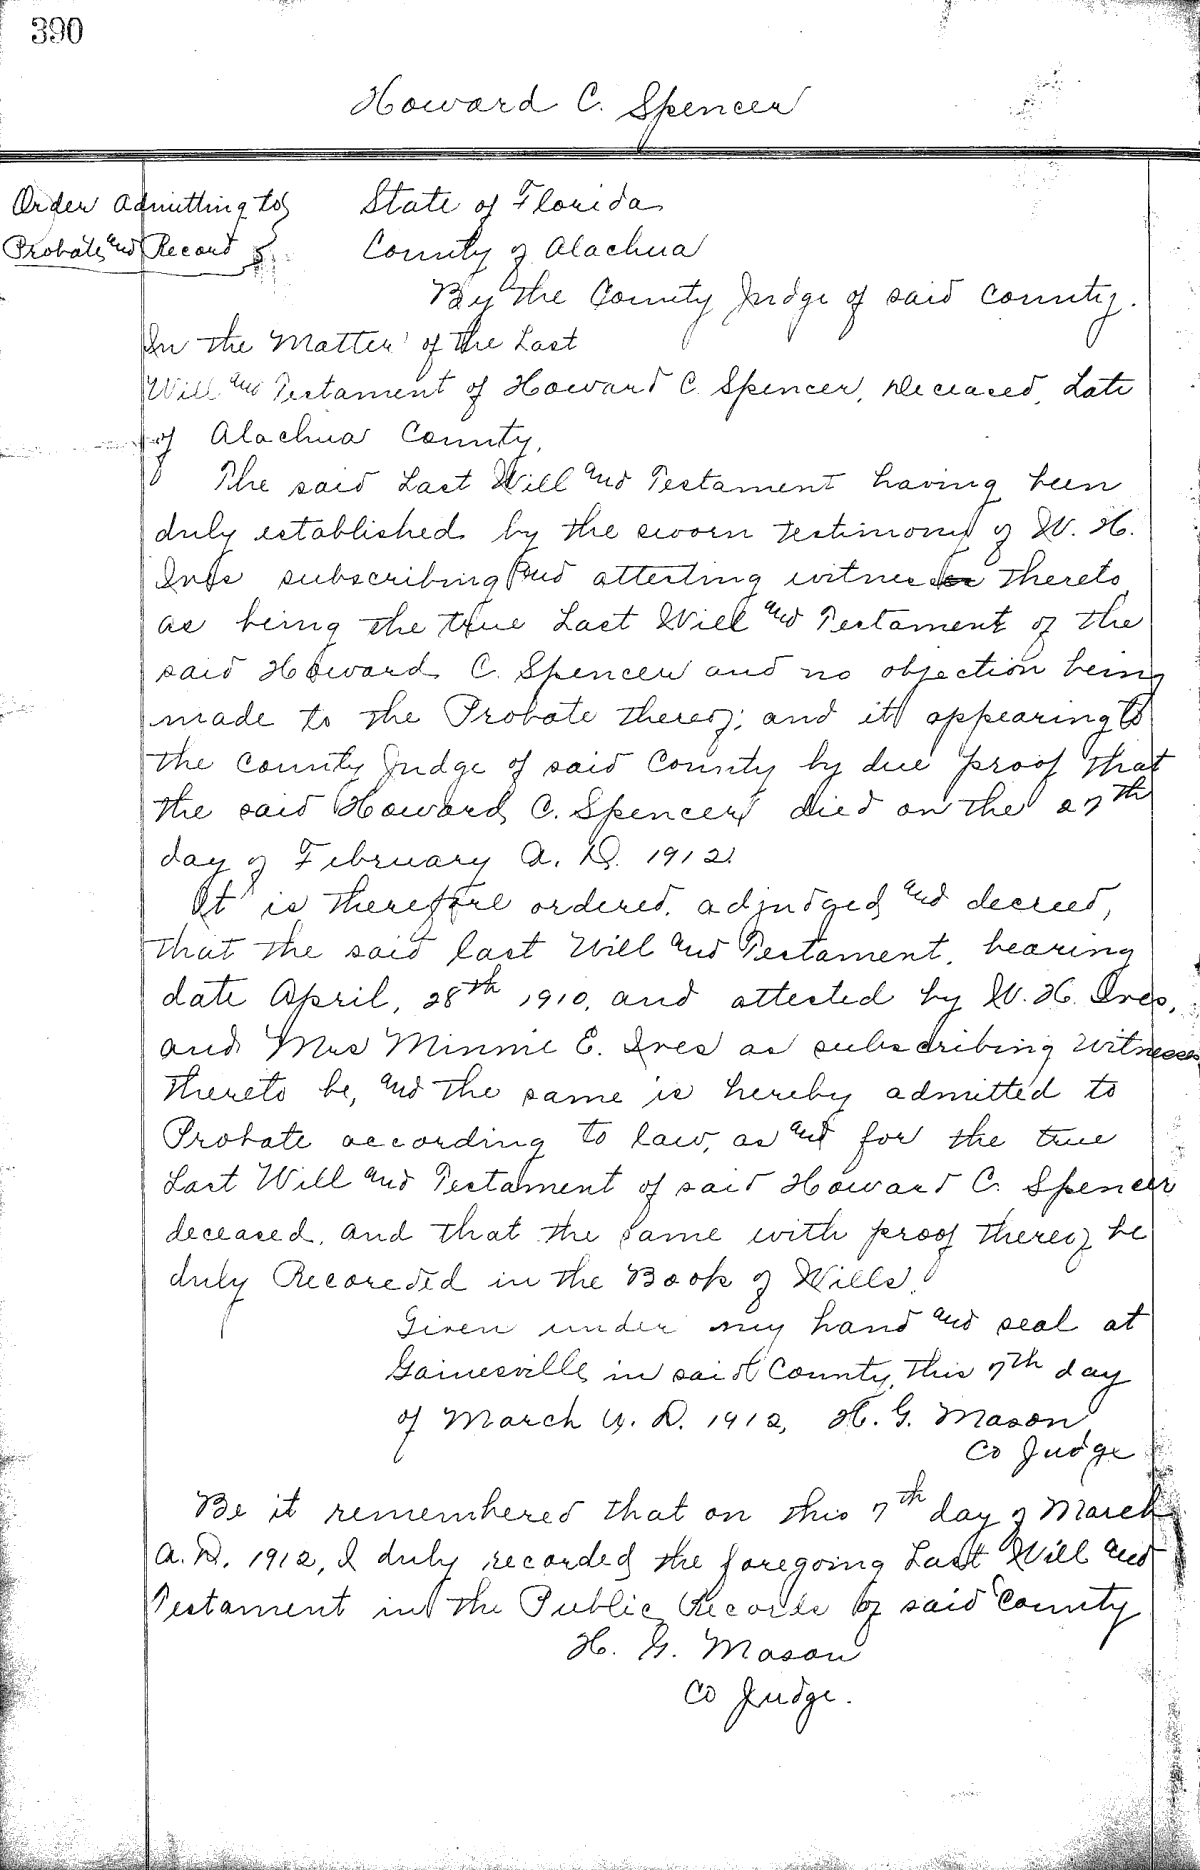 390
Howard C. Spencer
Order Admitting to
Probate and Record
State of Florida
County of Alachua
By the County Judge of said county.
In the Matter of the Last
Will and Testament of Howard C. Spencer, Deceased, Late
of Alachua County,
The said Last Will and Testament having been
duly established by the sworn testimony of W. H.
Ives subscribing and attesting witness thereto
as being the true Last Will and Testament of the
said Howard C. Spencer and no objection being
made to the Probate thereof; and it appearing to
the County Judge of said County by due proof that
the said Howard C. Spencer died on the 27th
day of February A. D. 1912.
It is therefore ordered, adjudged and decreed,
that the said last Will and Testament, bearing
date April, 28th 1910, and attested by W. H. Ives,
and Mrs Minnie E. Ives as subscribing Witnesses
thereto be, and the same is hereby admitted to
Probate according to law, as and for the true
Last Will and Testament of said Howard C. Spencer
deceased, and that the same with proof thereof be
duly Recoreded in the Book of Wills.
Given under my hand and seal at
Gainesville in said County, this 7th day
of March A. D. 1912, H. G. Mason
Co Judge
Be it remembered that on this 7th day of March
A. D. 1912, I duly recorded the foregoing Last Will and
Testament in the Public Records of said County
H. G. Mason
Co Judge.